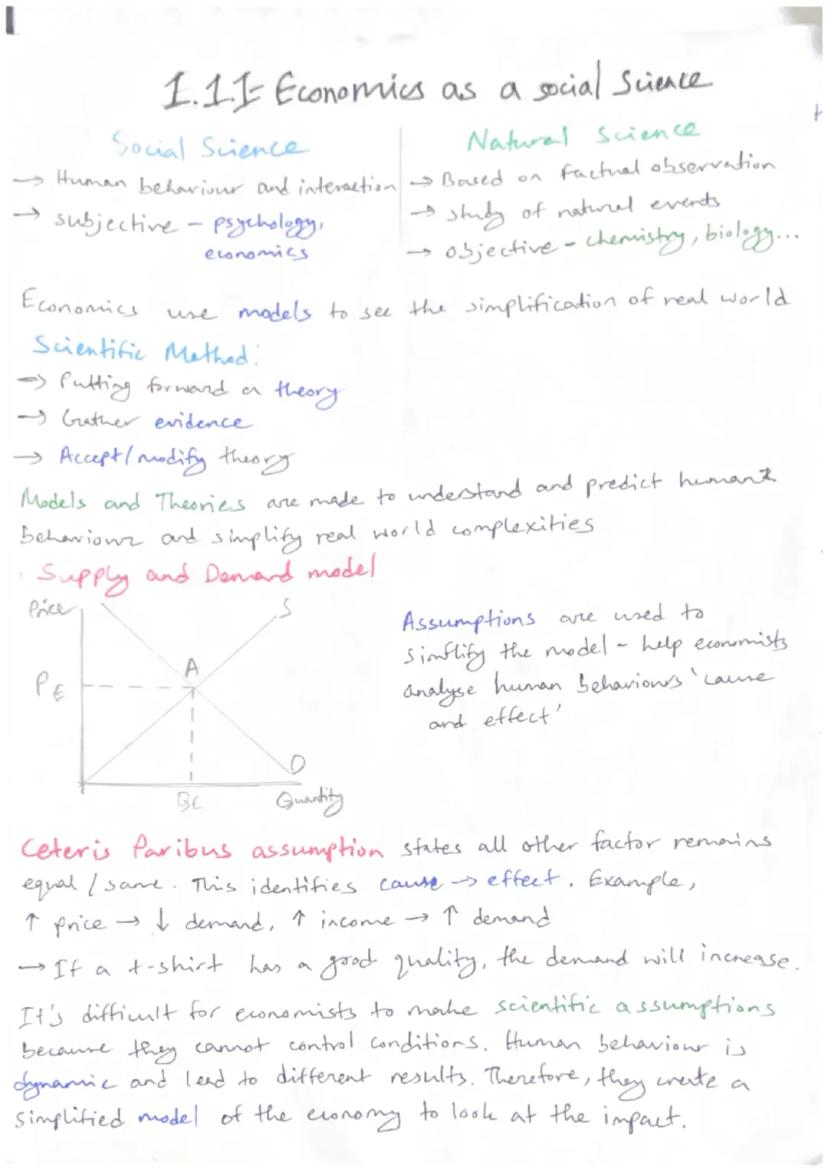 1.1.1- Economics as a social Science
Social Science
→ Human behaviour and interaction
→ subjective - psychology,
economics
Natural Science
→ Based on factual observation
→ study of natural events
→ objective - chemistry, biology...
Economics use models to see the simplification of real world
Scientific Method:
→ Putting forward a theory
→ Gather evidence
→ Accept/modify theory
Models and Theories are made to understand and predict human
behaviour and simplify real world complexities
Supply and Demand model
Price
S
A
PE
D
Quantity
Assumptions are used to
simplify the model - help economists
analyse human behaviours 'cause
and effect'
Ceteris Paribus assumption states all other factor remains
equal / same. This identifies cause → effect. Example,
↑ price → ↓ demand, ↑ income → ↑ demand
→ If a t-shirt has a good quality, the demand will increase.
It's difficult for economists to make scientific assumptions
because they cannot control conditions. Human behaviour is
dynamic and lead to different results. Therefore, they create a
simplified model of the economy to look at the impact.